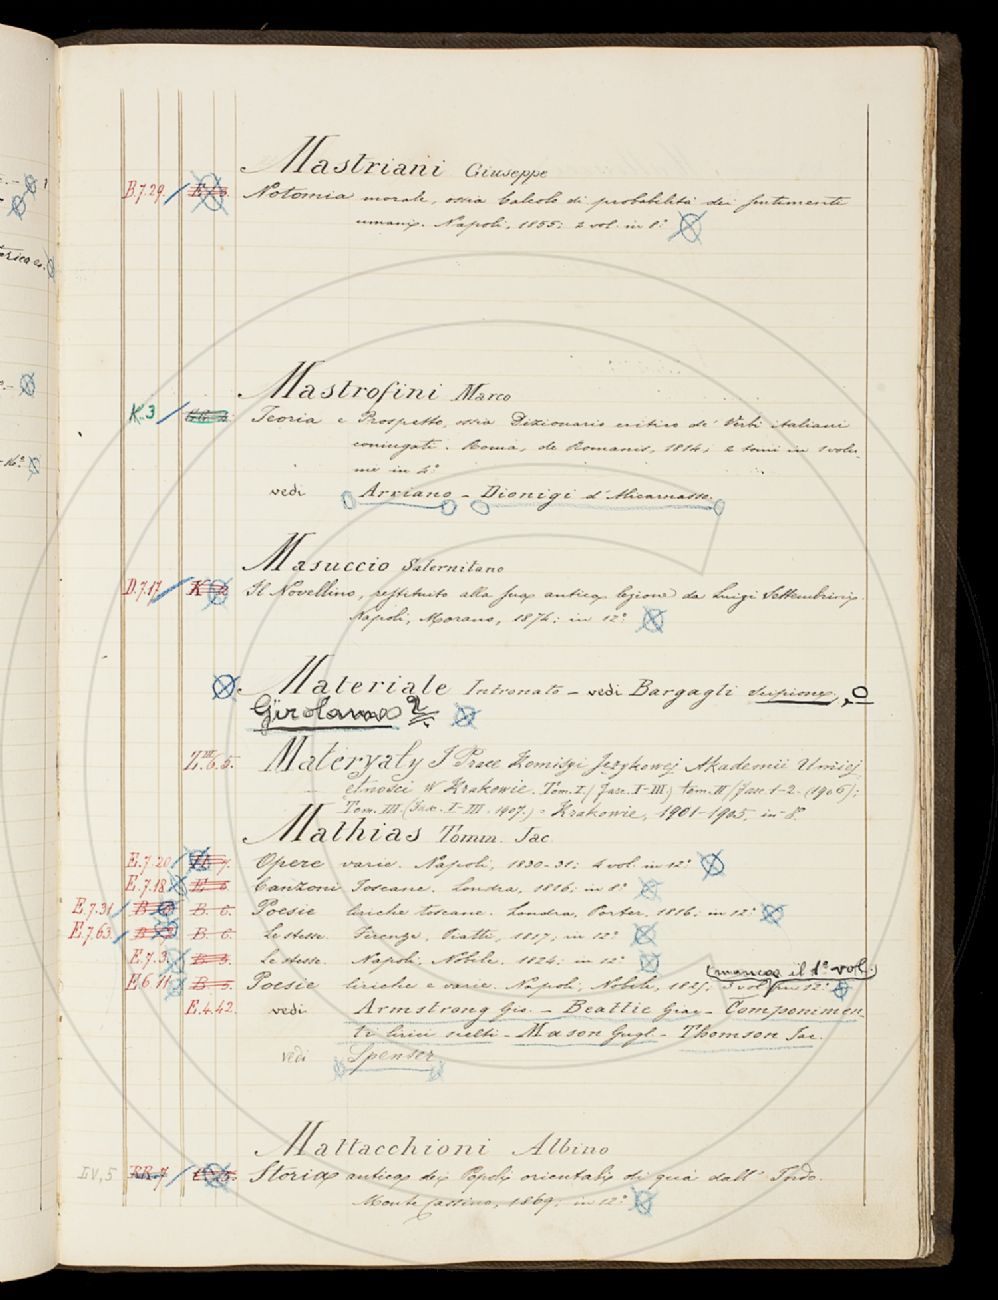 Mastriani Giuseppe
B.7.29. Notomia morale, ossia Calcolo di probabilità dei sentimenti
umani. Napoli, 1855; 2 vol. in 8°
Mastrofini Marco
K.3 Teoria e Prospetto, ossia Dizionario critico de' Verbi italiani
coniugati. Roma, de Romanis, 1814; 2 tomi in 1 volu-
me in 4°
vedi Arriano - Dionigi d'Alicarnasso.
Masuccio Salernitano
D.7.17 Il Novellino, restituito alla sua antica lezione da Luigi Settembrini.
Napoli, Morano, 1874; in 12°
Materiale Intronato - vedi Bargagli Scipione, O
Girolamo?
Z.III.6.5. Materyały I Prace Komisyi Językowej Akademii Umiej
etności W Krakowie. Tom. I. (Fasc. I-III) tom. II (Fasc. 1-2. (1906);
Tom. III. (Fasc. I-III. 1907.) - Krakowie, 1901-1905, in-8°
Mathias Tomm. Jac.
E.7.20 Opere varie. Napoli, 1830-31; 2 vol. in 12°
E.7.18 Canzoni Toscane. Londra, 1816; in 8°
E.7.31 B. 6. Poesie liriche toscane. Londra, Porter, 1816; in 12°
E.7.63. B. 6. Le stesse. Firenze, Piatti, 1817; in 12°
E.7.3 B. 3. Le stesse. Napoli, Nobile, 1824; in 12°
(manca il 1° vol.)
E.6.11 B. 5. Poesie liriche e varie. Napoli, Nobile, 1825; 3 vol. in 12°
E.4.42. vedi Armstrong Gio. - Beattie Giac - Componimen
ti lirici scelti - Mason Gugl - Thomson Jac.
vedi Spenser
Mattacchioni Albino
LV,5 RR.7 Storia antica dei Popoli orientali di quà dall' Indo.
Monte Cassino, 1869; in 12°